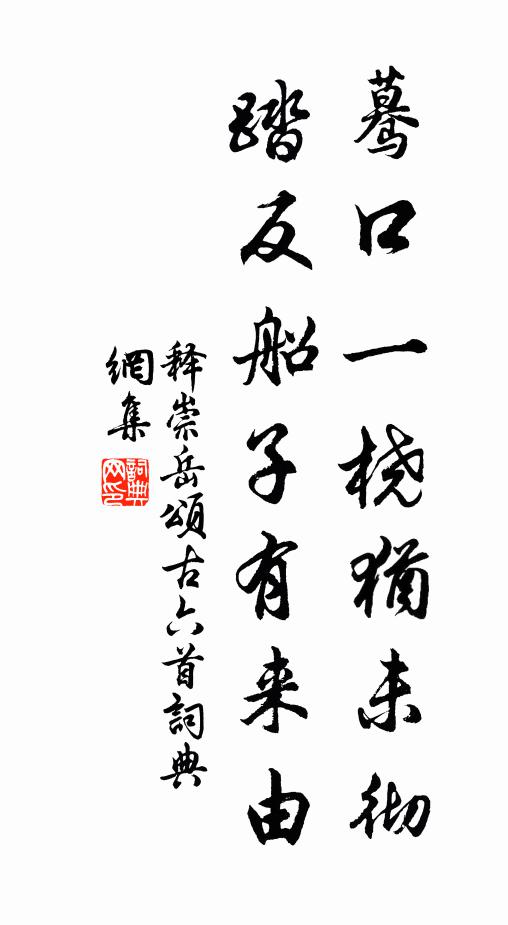 驀口一桡猶未彻
踏反船子有来由
释崇岳頌古六首詞典
網集
詞典
网印